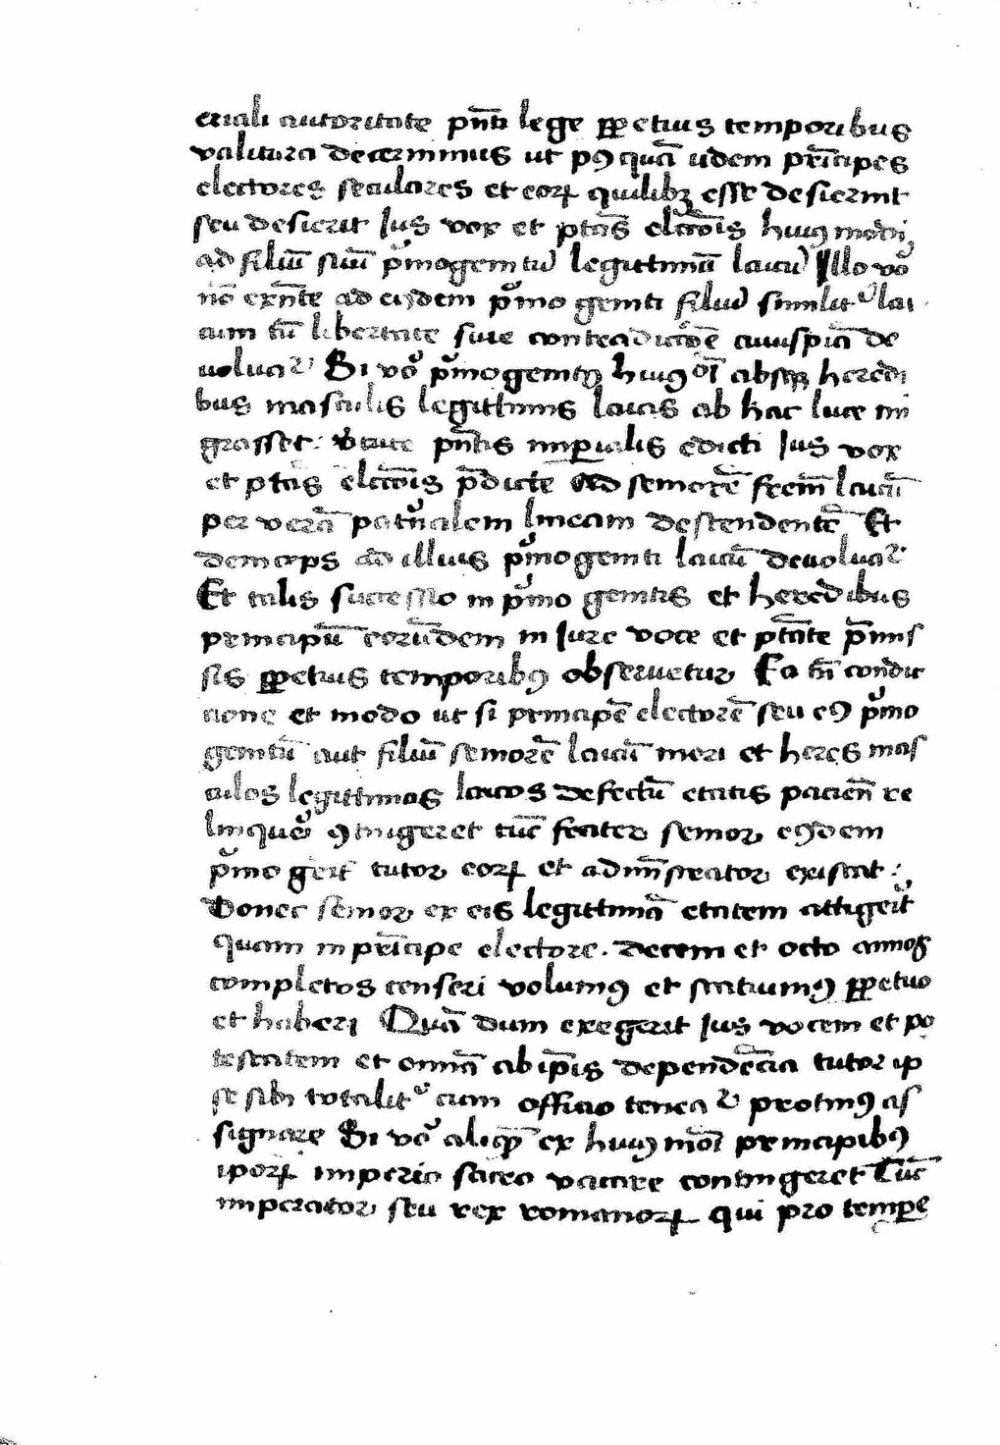 eriali autoritate pn̄ti lege ꝑpetuis temporibus
valitura decernimus ut pꝯquā iidem prīcipes
electores seculares et eoꝝ quilibꝫ esse desierint
seu desierit Jus vox et ptās elc̄ōis huiꝯmodi
ad filiū suū pͥmogenitū legittimū laicū Illo vͦo
nō exn̄te ad eiꝰdem pͥmo geniti filiū similitᷣ lai
cum tū libertate siue contradictōē cuiuspiā de
voluaᷣ Si vͦo pͥmogenitꝰ huiꝰmōi absqꝫ heredi
bus masculis legittimis laicis ab hac luce mi
grasset: v̄tute pn̄tis imꝑialis edicti Jus vox
et ptās elc̄ōis p̄dicte Ad seniorē frēm laicū
per verā patͥnalem lineam descendentē Et
demceps ad illius pͥmogeniti laicū deuoluaᷣ
Et talis successio in pͥmo genitis et heredibus
principū eorūdem in Jure voce et ptāte p̄mis
sis ꝑpetuis temporibꝯ obseruetur Ea tn̄ condic
cione et modo ut si principē electorē seu eiꝯ pͥmo
genitū aut filiū seniorē laicū mori et heres mas
culos legittimos laicos defectū etatis pacien̄ re
linquē̄ ꝯtingeret tūc frater senior eiꝯdem
pͥmo geīt tutor eoꝝ et admīstrator existat:
Donec senior ex eis legittimā etatem attigeīt
quam in prīcipe electore. decem et octo annos
completos censeri volumꝯ et statuimꝯ ꝑpetuo
et haberi Quā dum exegerit Jus vocem et po
testatem et omīa ab ip̄is dependēcia tutor ip
se sibi totalitᷣ cum officio teneaᷣ protinꝯ as
signare Si vͦo aliqͤm ex huiꝯmōi principibꝯ
ipoꝝ imperio sacro vacare contingeret Tūc
imperator seu rex romanoꝝ qui pro tempe